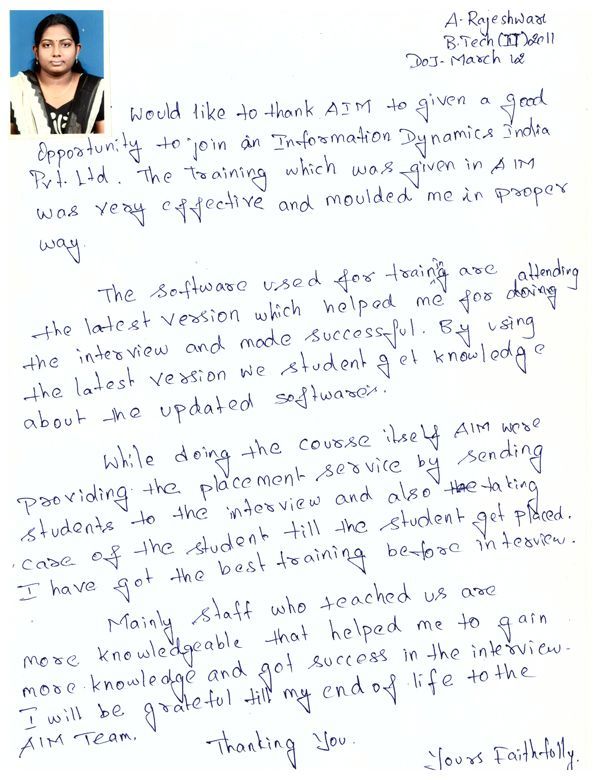 A. Rajeshwari
B.Tech (IT) 2011
DOJ- March 12
Would like to thank AIM to given a good
Opportunity to join an Information Dynamics India
Pvt. Ltd. The Training which was given in AIM
was very effective and moulded me in proper
way.
The software used for training are attending
the latest version which helped me for doing
the interview and made successful. By using
the latest version we student get knowledge
about the updated software's.
While doing the course itself AIM were
providing the placement service by sending
students to the interview and also the taking
care of the student till the student get placed.
I have got the best training before interview.
Mainly staff who teached us are
more knowledgeable that helped me to gain
more knowledge and got success in the interview.
I will be grateful till my end of life to the
AIM Team.
Thanking You.
Yours Faithfully.